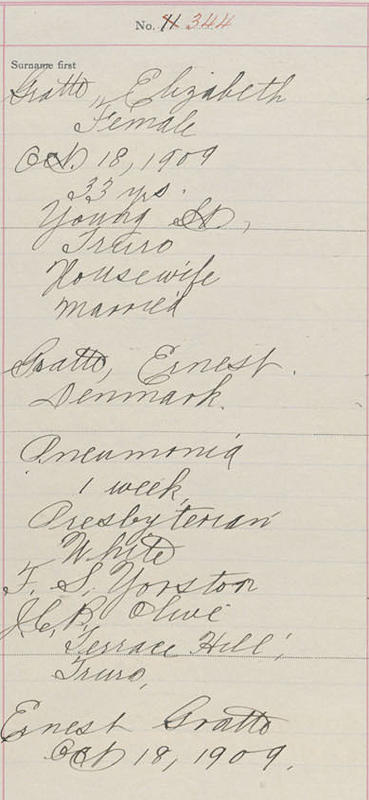 No. 344
Surname first
Gratto, Elizabeth
Female
Oct. 18, 1909
33 yrs.
Young St,
Truro
Housewife
Married
Gratto, Ernest.
Denmark.
Pneumonia
1 week,
Presbyterian
White
F. S. Yorston
J.C.B, Olive
Terrace Hill,
Truro,
Ernest Gratto
Oct 18, 1909.